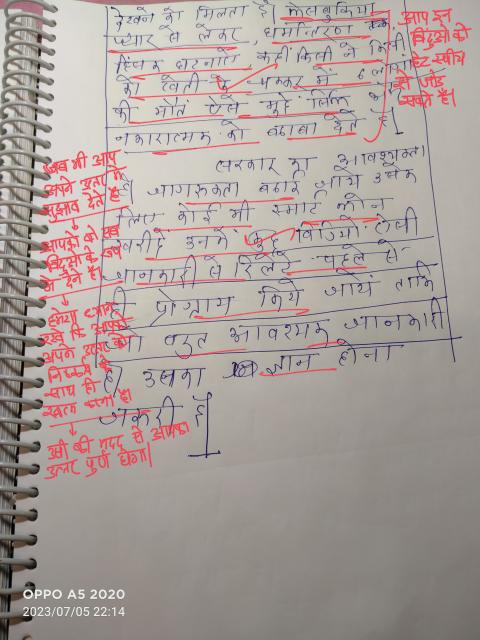 देखने को मिलता है। फेसबुकिया
प्यार से लेकर, धर्मान्तरण तक
हिंसक घटनायें कहीं किसी ने किसी
के चक्कर में
की मौत ऐसे मुद्दे
नकारात्मक को बढ़ावा देते हैं।
आप इन
बिंदुओं को
हेट स्पीच
से जोड़
सकते हैं।
सरकार को आवश्यकता
है जागरूकता बढ़ाई जाये उसके
लिए कोई भी स्मार्ट फोन
खरीदें उनमें कुछ विडियो ऐसी
जानकारी से रिलेटेड पहले से
ही प्रोग्राम किये जायें ताकि
जो बहुत आवश्यक जानकारी
है उसका ज्ञान होना
जरूरी है।
जब भी आप
अपने उत्तर में
सुझाव देते हैं
आपको वो सब
बिंदुओं के रूप
में देने हैं।
हमेशा ध्यान
रखे कि आपको
अपने उत्तर को
निष्कर्ष के
साथ ही
खत्म करना है।
उसी की मदद से आपका
उत्तर पूर्ण होगा।
OPPO A5 2020
2023/07/05 22:14